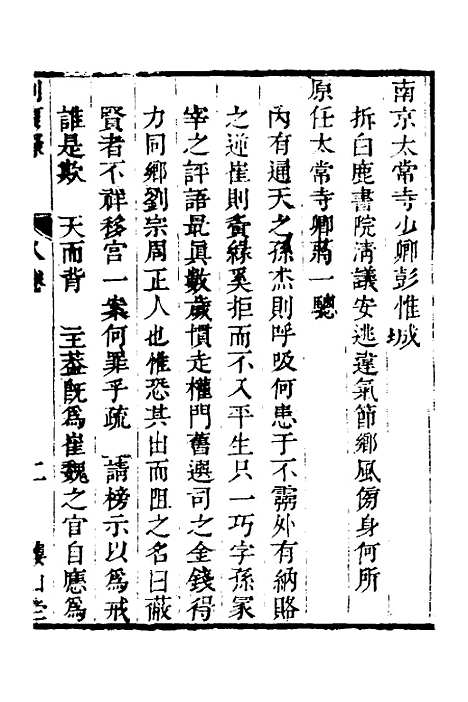 南京太常寺少卿彭惟城
拆白鹿書院淸議安逃違氣節鄉風傷身何所
原任太常寺卿蔣一驄
內有通天之孫杰則呼吸何患于不霛外有納賂
之逆崔則夤緣奚拒而不入平生只一巧字孫冢
宰之評語最眞數歲慣走權門舊選司之金錢得
力同鄉劉宗周正人也惟恐其出而阻之名曰蔽
賢者不祥移宮一案何罪乎疏 請榜示以爲戒
誰是欺 天而背 主葢旣爲崔魏之官自應爲
八卷 二